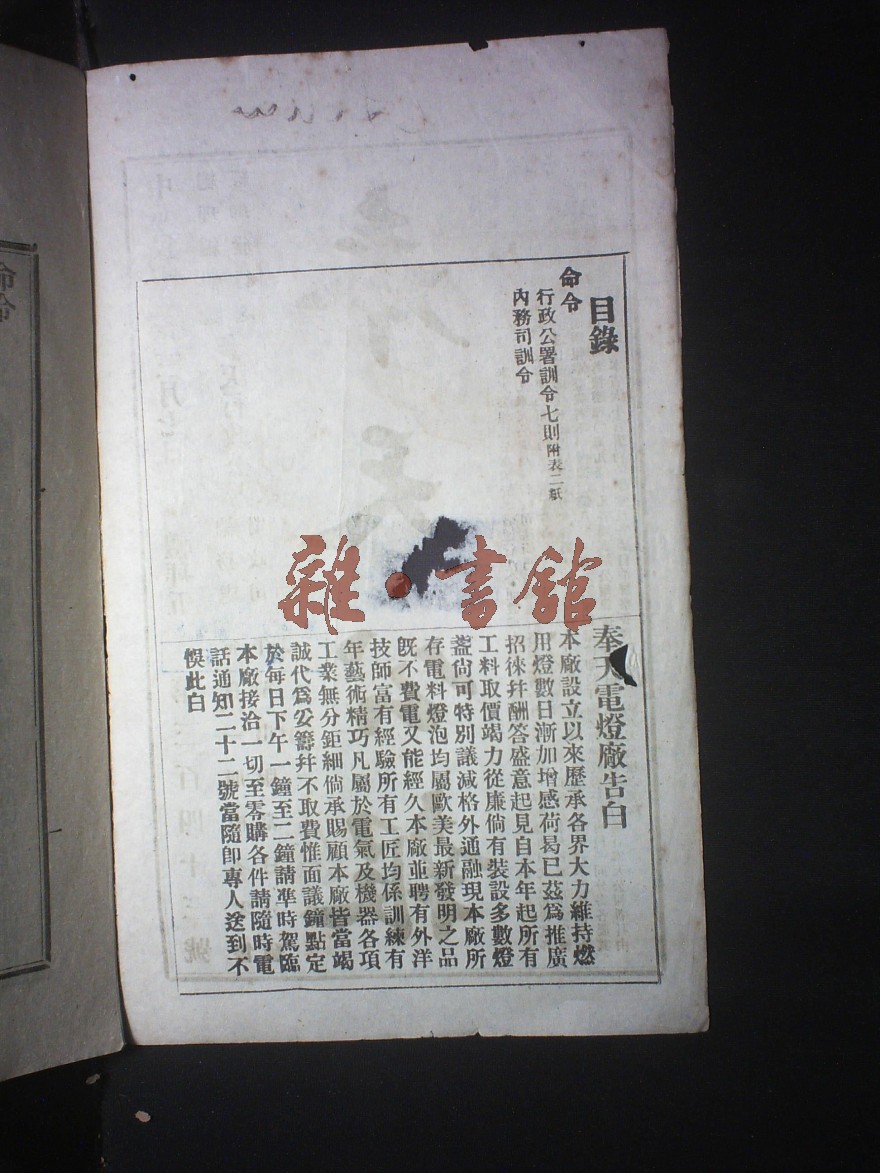 目錄
命令
行政公署訓令七則附表二紙
內務司訓令
雜·書館
奉天電燈廠告白
本廠設立以來歷承各界大力維持燃
用燈數日漸加增感荷曷已茲爲推廣
招徠幷酬答盛意起見自本年起所有
工料取價竭力從廉倘有裝設多數燈
盞尙可特別議減格外通融現本廠所
存電料燈泡均屬歐美最新發明之品
旣不費電又能經久本廠並聘有外洋
技師富有經驗所有工匠均係訓練有
年藝術精巧凡屬於電氣及機器各項
工業無分鉅細倘承賜顧本廠皆當竭
誠代爲妥籌幷不取費惟面議鐘點定
於每日下午一鐘至二鐘請準時駕臨
本廠接洽一切至零購各件請隨時電
話通知二十二號當隨卽專人送到不
悞此白
命令